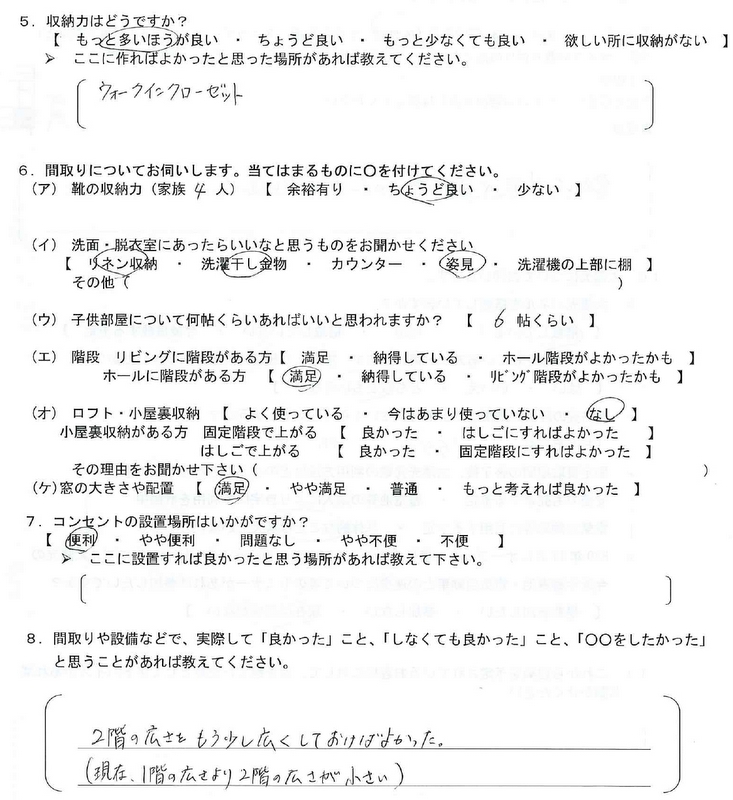 5．収納力はどうですか？
【　もっと多いほうが良い　・　ちょうど良い　・　もっと少なくても良い　・　欲しい所に収納がない　】
➢　ここに作ればよかったと思った場所があれば教えてください。
ウォークインクローゼット
6．間取りについてお伺いします。当てはまるものに〇を付けてください。
（ア）　靴の収納力（家族　4　人）　【　余裕有り　・　ちょうど良い　・　少ない　】
（イ）　洗面・脱衣室にあったらいいなと思うものをお聞かせください
【　リネン収納　・　洗濯干し金物　・　カウンター　・　姿見　・　洗濯機の上部に棚　】
その他（　　　　　）
（ウ）　子供部屋について何帖くらいあればいいと思われますか？　【　6　帖くらい　】
（エ）　階段　リビングに階段がある方【　満足　・　納得している　・　ホール階段がよかったかも　】
ホールに階段がある方　【　満足　・　納得している　・　ﾘﾋﾞﾝｸﾞ階段がよかったかも　】
（オ）　ロフト・小屋裏収納　【　よく使っている　・　今はあまり使っていない　・　なし　】
小屋裏収納がある方　固定階段で上がる　【　良かった　・　はしごにすればよかった　】
はしごで上がる　【　良かった　・　固定階段にすればよかった　】
その理由をお聞かせ下さい（　　　　　）
（ケ）窓の大きさや配置　【　満足　・　やや満足　・　普通　・　もっと考えれば良かった　】
7．コンセントの設置場所はいかがですか？
【　便利　・　やや便利　・　問題なし　・　やや不便　・　不便　　】
➢　ここに設置すれば良かったと思う場所があれば教えて下さい。
8．間取りや設備などで、実際して「良かった」こと、「しなくても良かった」こと、「〇〇をしたかった」
と思うことがあれば教えてください。
2階の広さをもう少し広くしておけばよかった。
（現在、1階の広さより2階の広さが小さい）